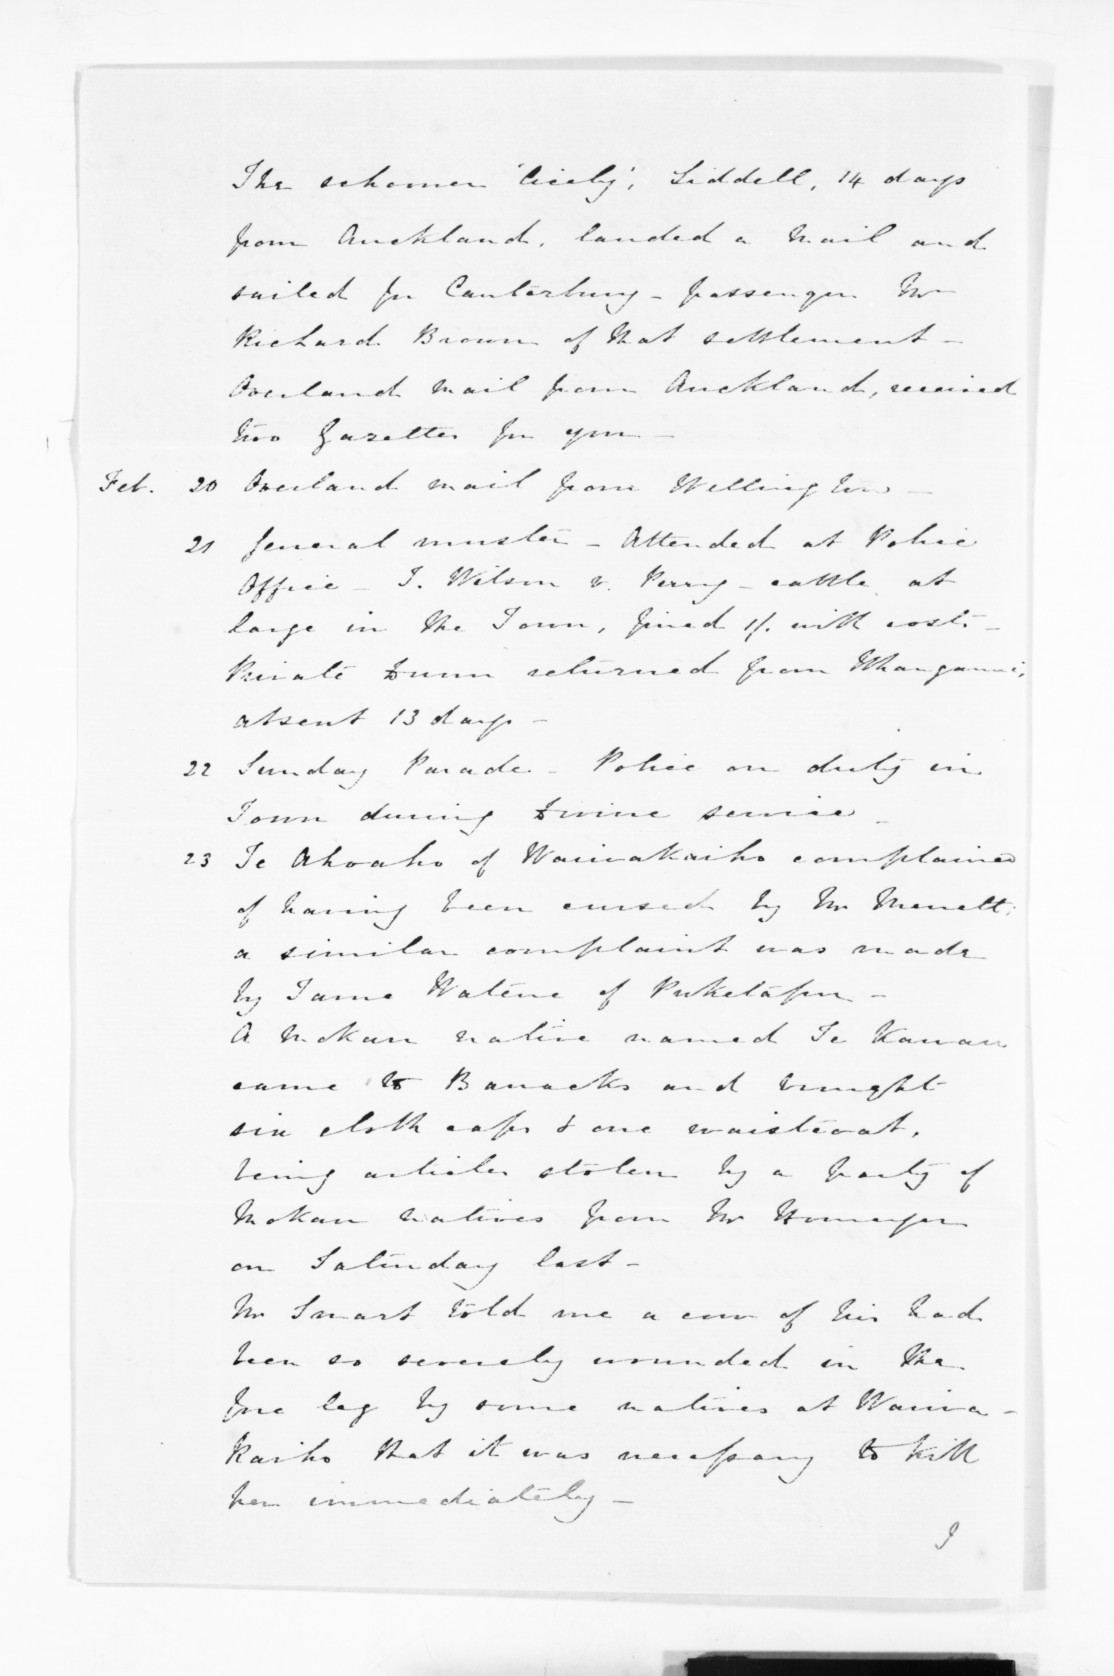 The schooner 'Cicely', Liddell, 14 days
from Auckland, landed a mail and
sailed for Canterbury - passenger Mr
Richard Brown of that settlement -
Overland mail from Auckland, received
two Gazettes for you -
Feb. 20 Overland mail from Wellington -
21 General muster - Attended at Police
Office - J. Wilson v. Perry - cattle at
large in the Town, fined 1/. with costs -
Private Dunn returned from Whanganui,
absent 13 days -
22 Sunday Parade - Police on duty in
Town during Divine service -
23 Te Ahoaho of Waiwakaiho complained
of having been cursed by Mr
a similar complaint was made
by Tama Watene of Puketapu -
A Mokau native named Te Kawau
came to Barracks and brought
six cloth caps & one waistcoat,
being articles stolen by a party of
Mokau natives from Mr
on Saturday last -
Mr Smart told me a cow of his had
been so severely wounded in the
fore leg by some natives at Waiwa-
kaiho that it was necessary to kill
her immediately -
I